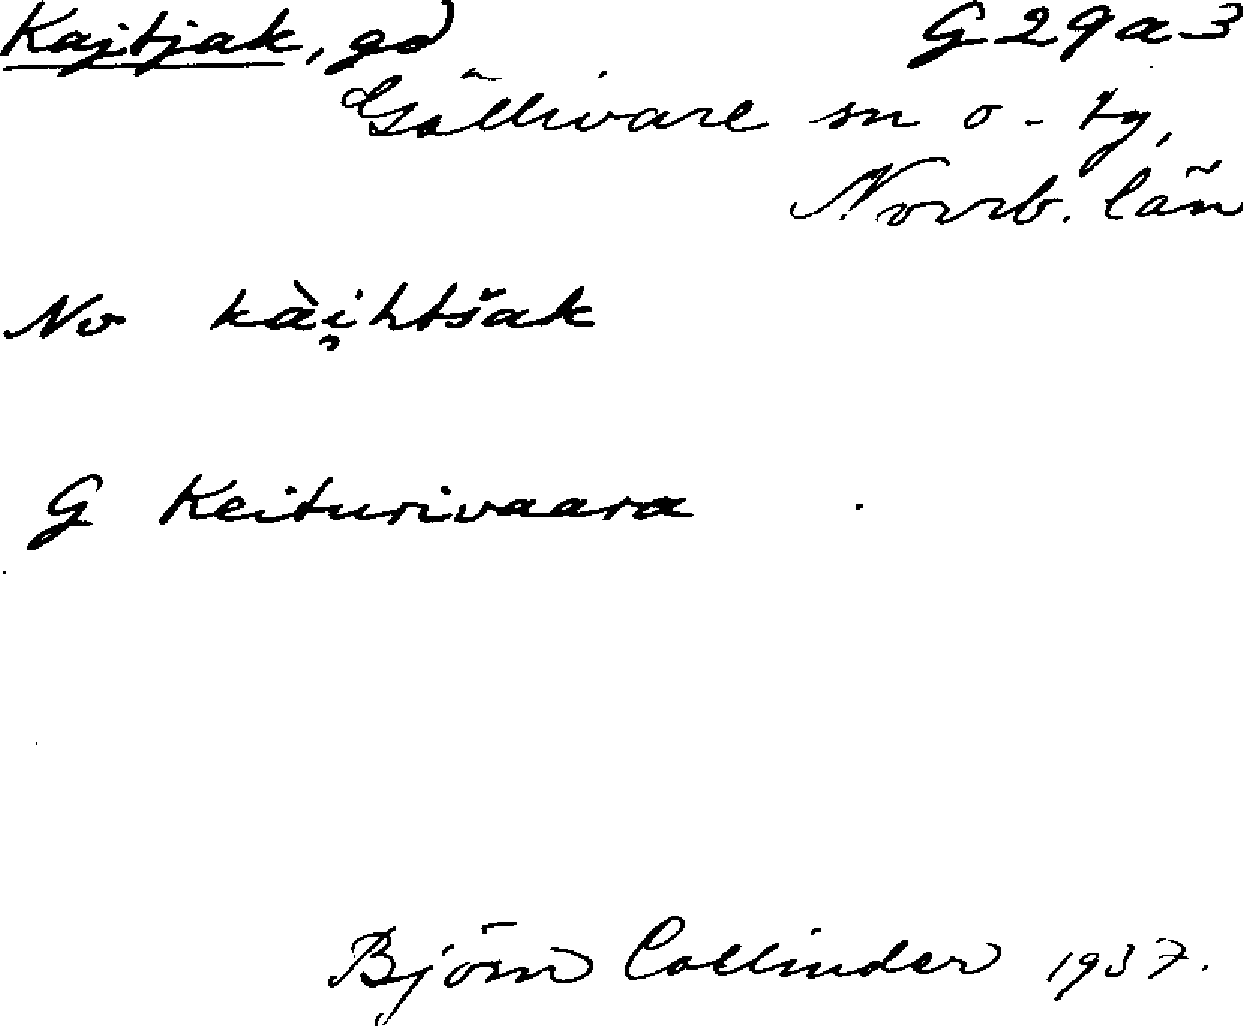 Kajtjak, gd G 29 a 3
Gällivare sn o - tg,
Norrb. län
No kài̯htšak
G Keiturivaara
Björn Collinder 1937.